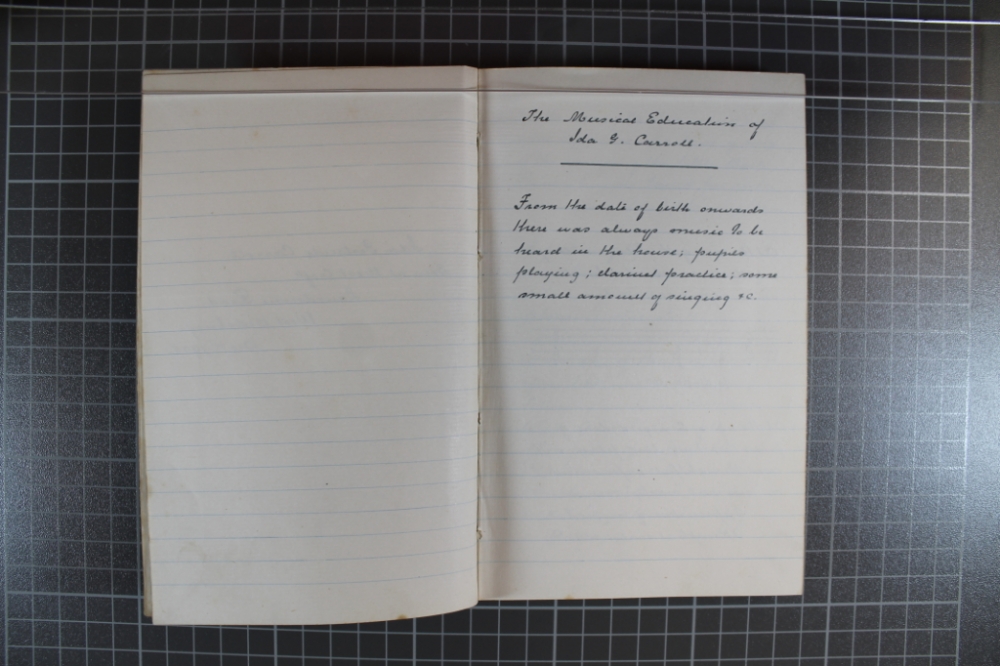 The Musical Education of
Ida G. Carroll.
From the date of birth onwards
there was always music to be
heard in the house; pupils
playing; clarinet practice; some
small amount of singing &c.